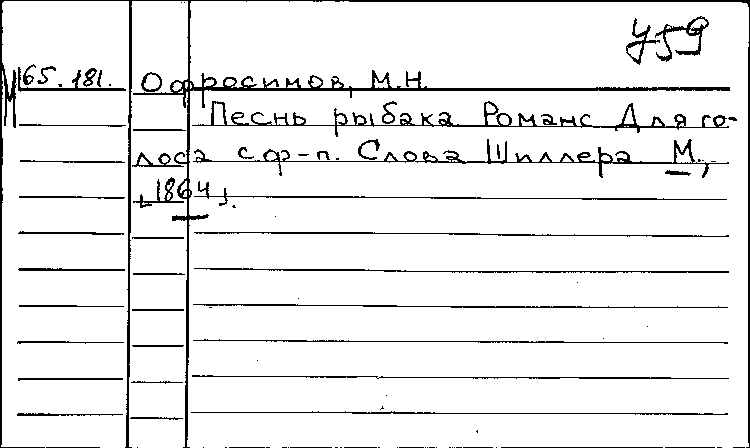 У59
М 165.181. Офросимов, М.Н.
Песнь рыбака Романс Для го-
лоса с ф-п. Слова Шиллера М.,
[1864].